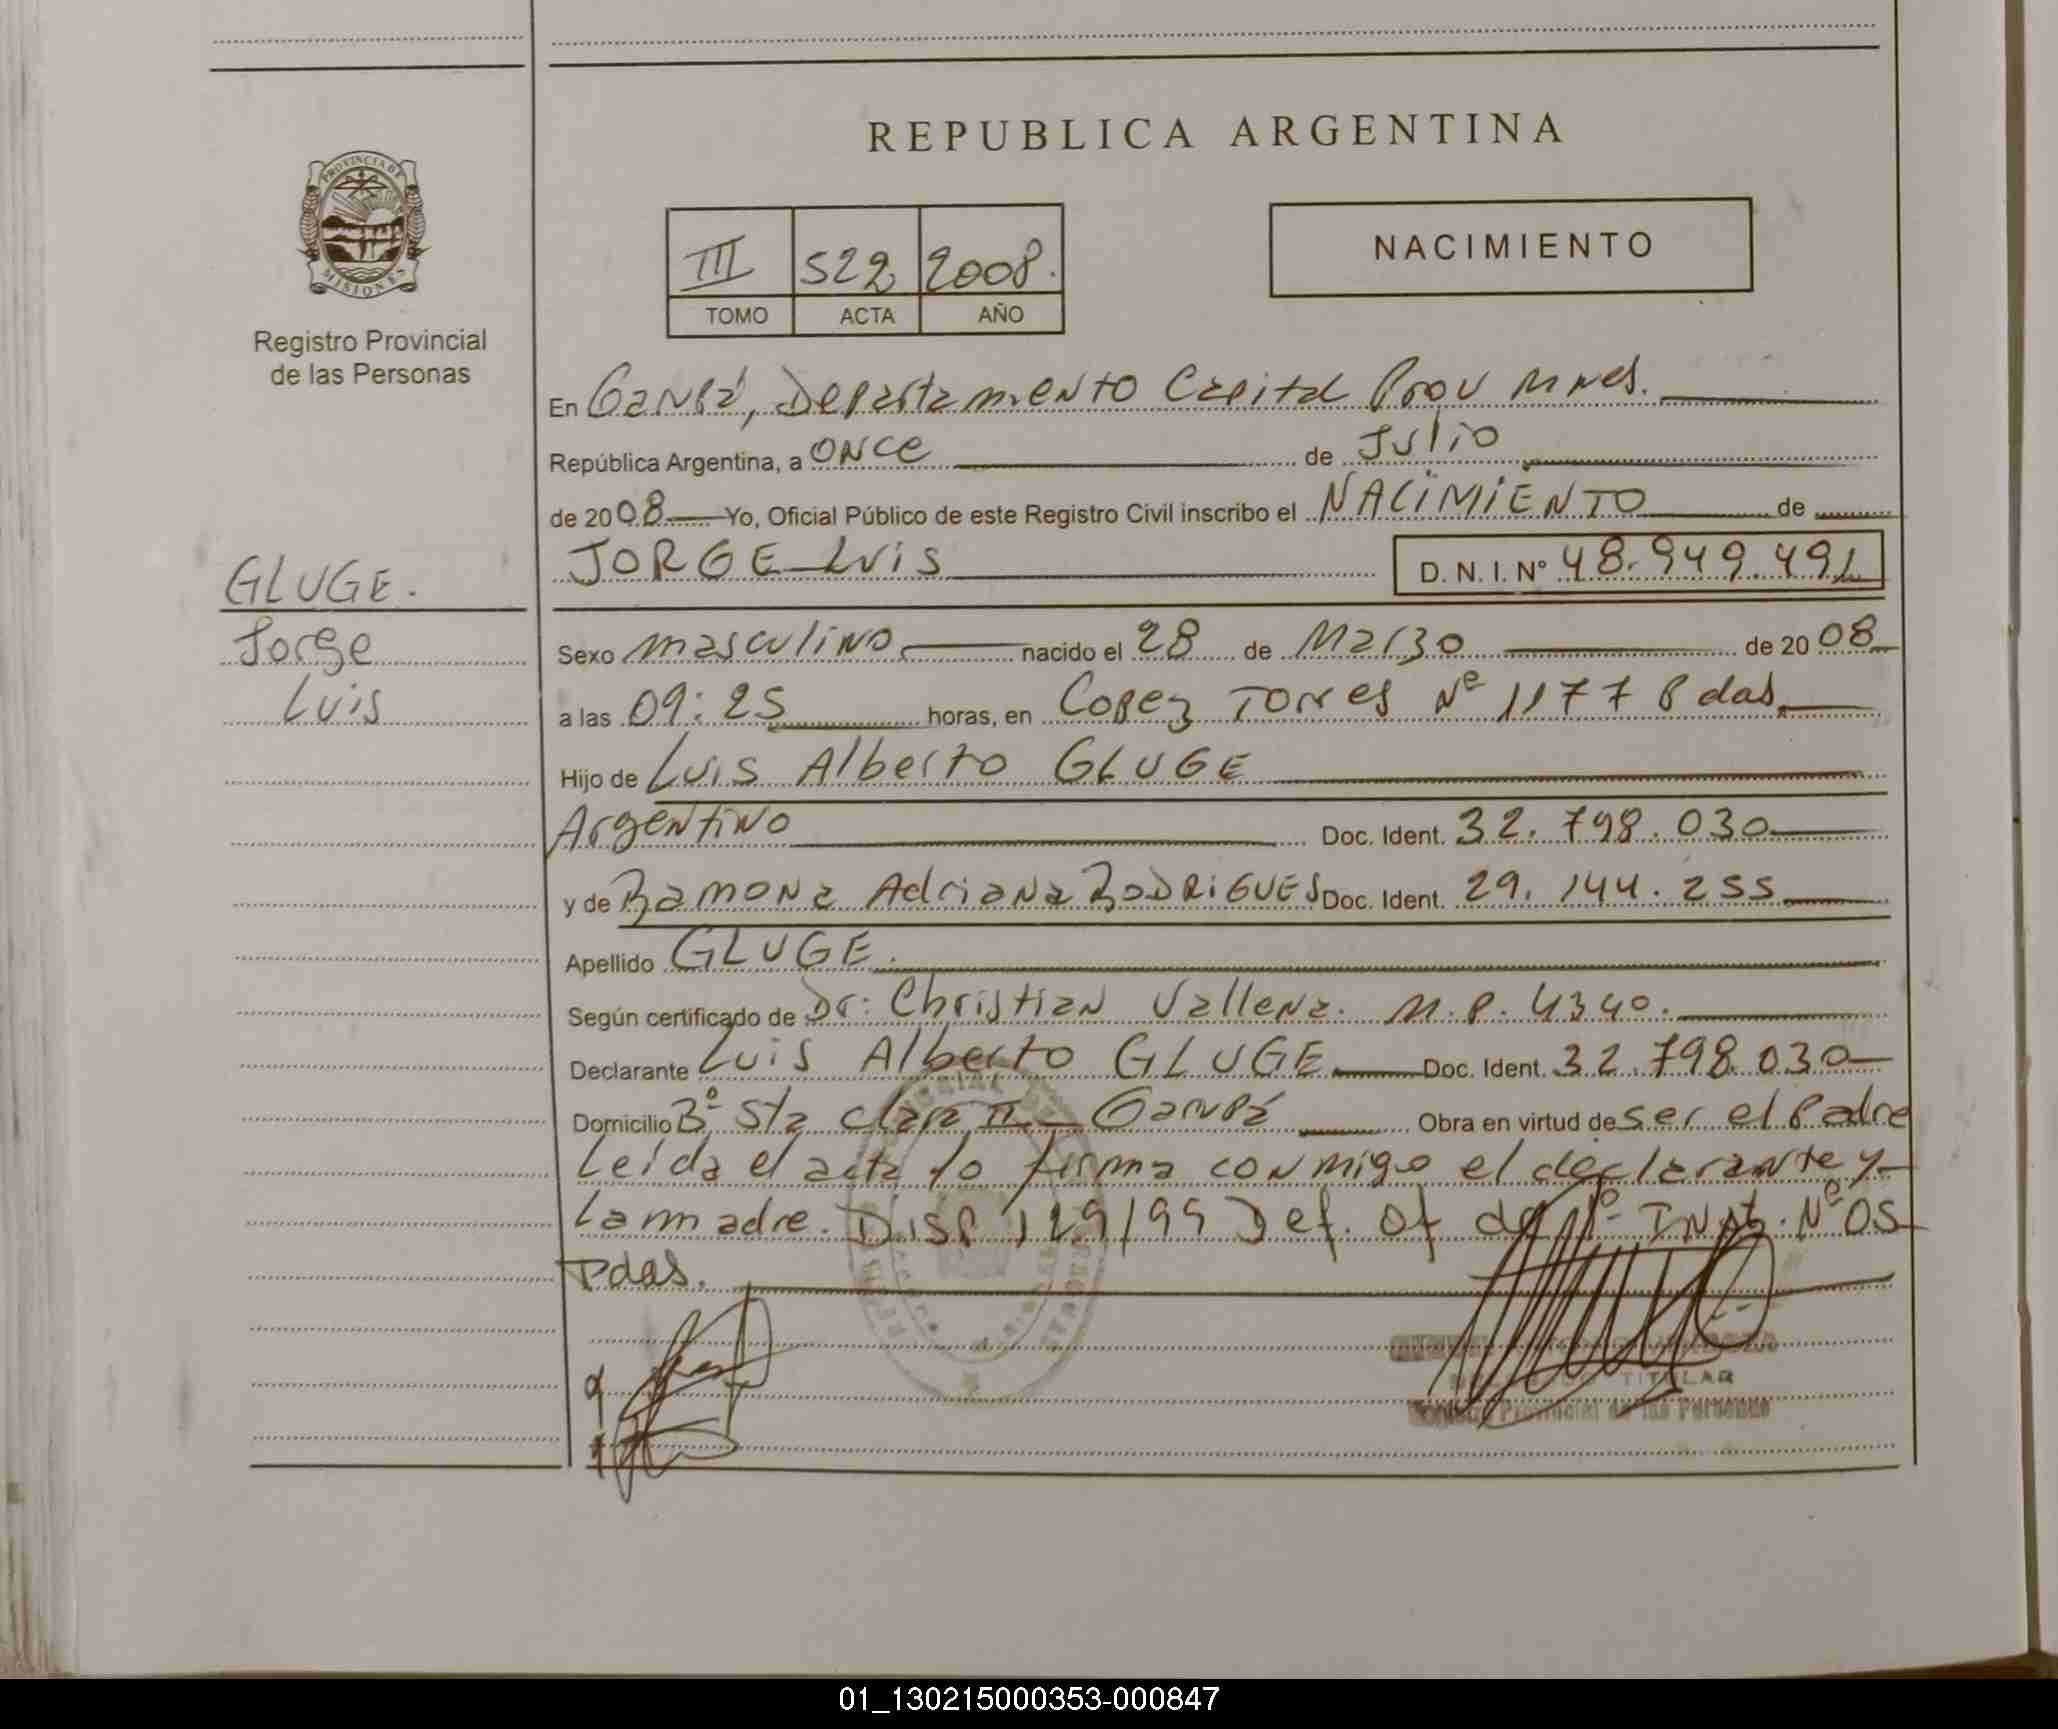 REPUBLICA ARGENTINA
PROVINCIA DE
MISIONES
Registro Provincial
de las Personas
III 522 2008.
TOMO ACTA AÑO
NACIMIENTO
En Garupá, Departamento Capital Prov Mnes.
República Argentina, a ONCE de Julio
de 2008 Yo, Oficial Público de este Registro Civil inscribo el NACIMIENTO de
JORGE Luis D. N. I. Nº 48.949.491
GLUGE.
Jorge
Luis
Sexo masculino nacido el 28 de Marzo de 2008
a las 09:25 horas, en Torres Nº 1177 Pdas
Hijo de Luis Alberto GLUGE
Argentino Doc. Ident. 32.798.030
y de Ramona Adriana RODRIGUES Doc. Ident. 29.144.255
Apellido GLUGE.
Según certificado de Dr: Christian Vallena. M.P. 4340.
Declarante Luis Alberto GLUGE Doc. Ident. 32.798.030
Domicilio Bº Sta clara II Garupá Obra en virtud de ser el Padre
Leída el acta lo firma conmigo el declarante y
La madre. Disp 129/99 Def. Of de 1º Inst. Nº 05
Pdas.
TITULAR
Provincial de las Personas
01_130215000353-000847